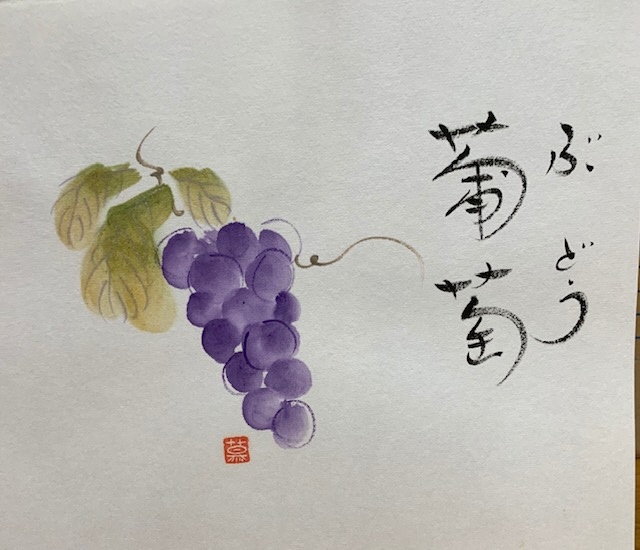 ぶどう
葡萄